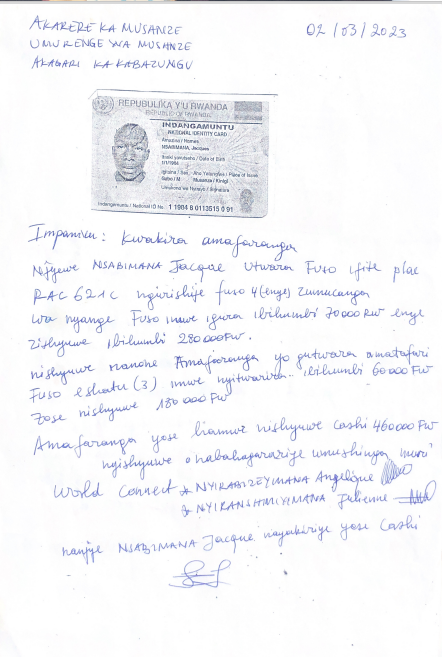 AKARERE KA MUSANZE
02/03/2023
UMURENGE WA MUSANZE
AKAGARI KA KABAZUNGU
REPUBULIKA Y'U RWANDA
REPUBLIC OF RWANDA
INDANGAMUNTU
NATIONAL IDENTITY CARD
Amazina / Names
NSABIMANA, Jacques
Itariki yavutseho / Date of Birth
1/1/1984
Igitsina / Sex
Aho Yatangiwe / Place of Issue
Gabo / M
Musanze / Kinigi
Umukono wa Nyirayo / Signature
Indangamuntu / National ID No. 1 1984 8 0113515 0 91
Impamvu: Kwakira amafaranga
Njyewe NSABIMANA Jacque utwara Fuso ifite plac
RAC 621C ngurishije fuso 4(enye) zumucanga
wa nyange Fuso imwe igura ibihumbi 70000 RW enye
zishyuwe ibihumbi 280000Fw.
nishyuwe nanone Amafaranga yo gutwara amatafari
Fuso eshatu (3) imwe nyitwarira ibihumbi 60000 Fw
zose nishyuwe 180 000 Fw
Amafaranga yose hamwe nishyuwe Cashi 460000 Fw
nyishyuwe nabahagarariye umushinga
World Connect NYIRABIZEYIMANA Angelique
NYIRANSHIMIYIMANA Julienne
nanjye NSABIMANA Jacque nayakiriye yose Cashi